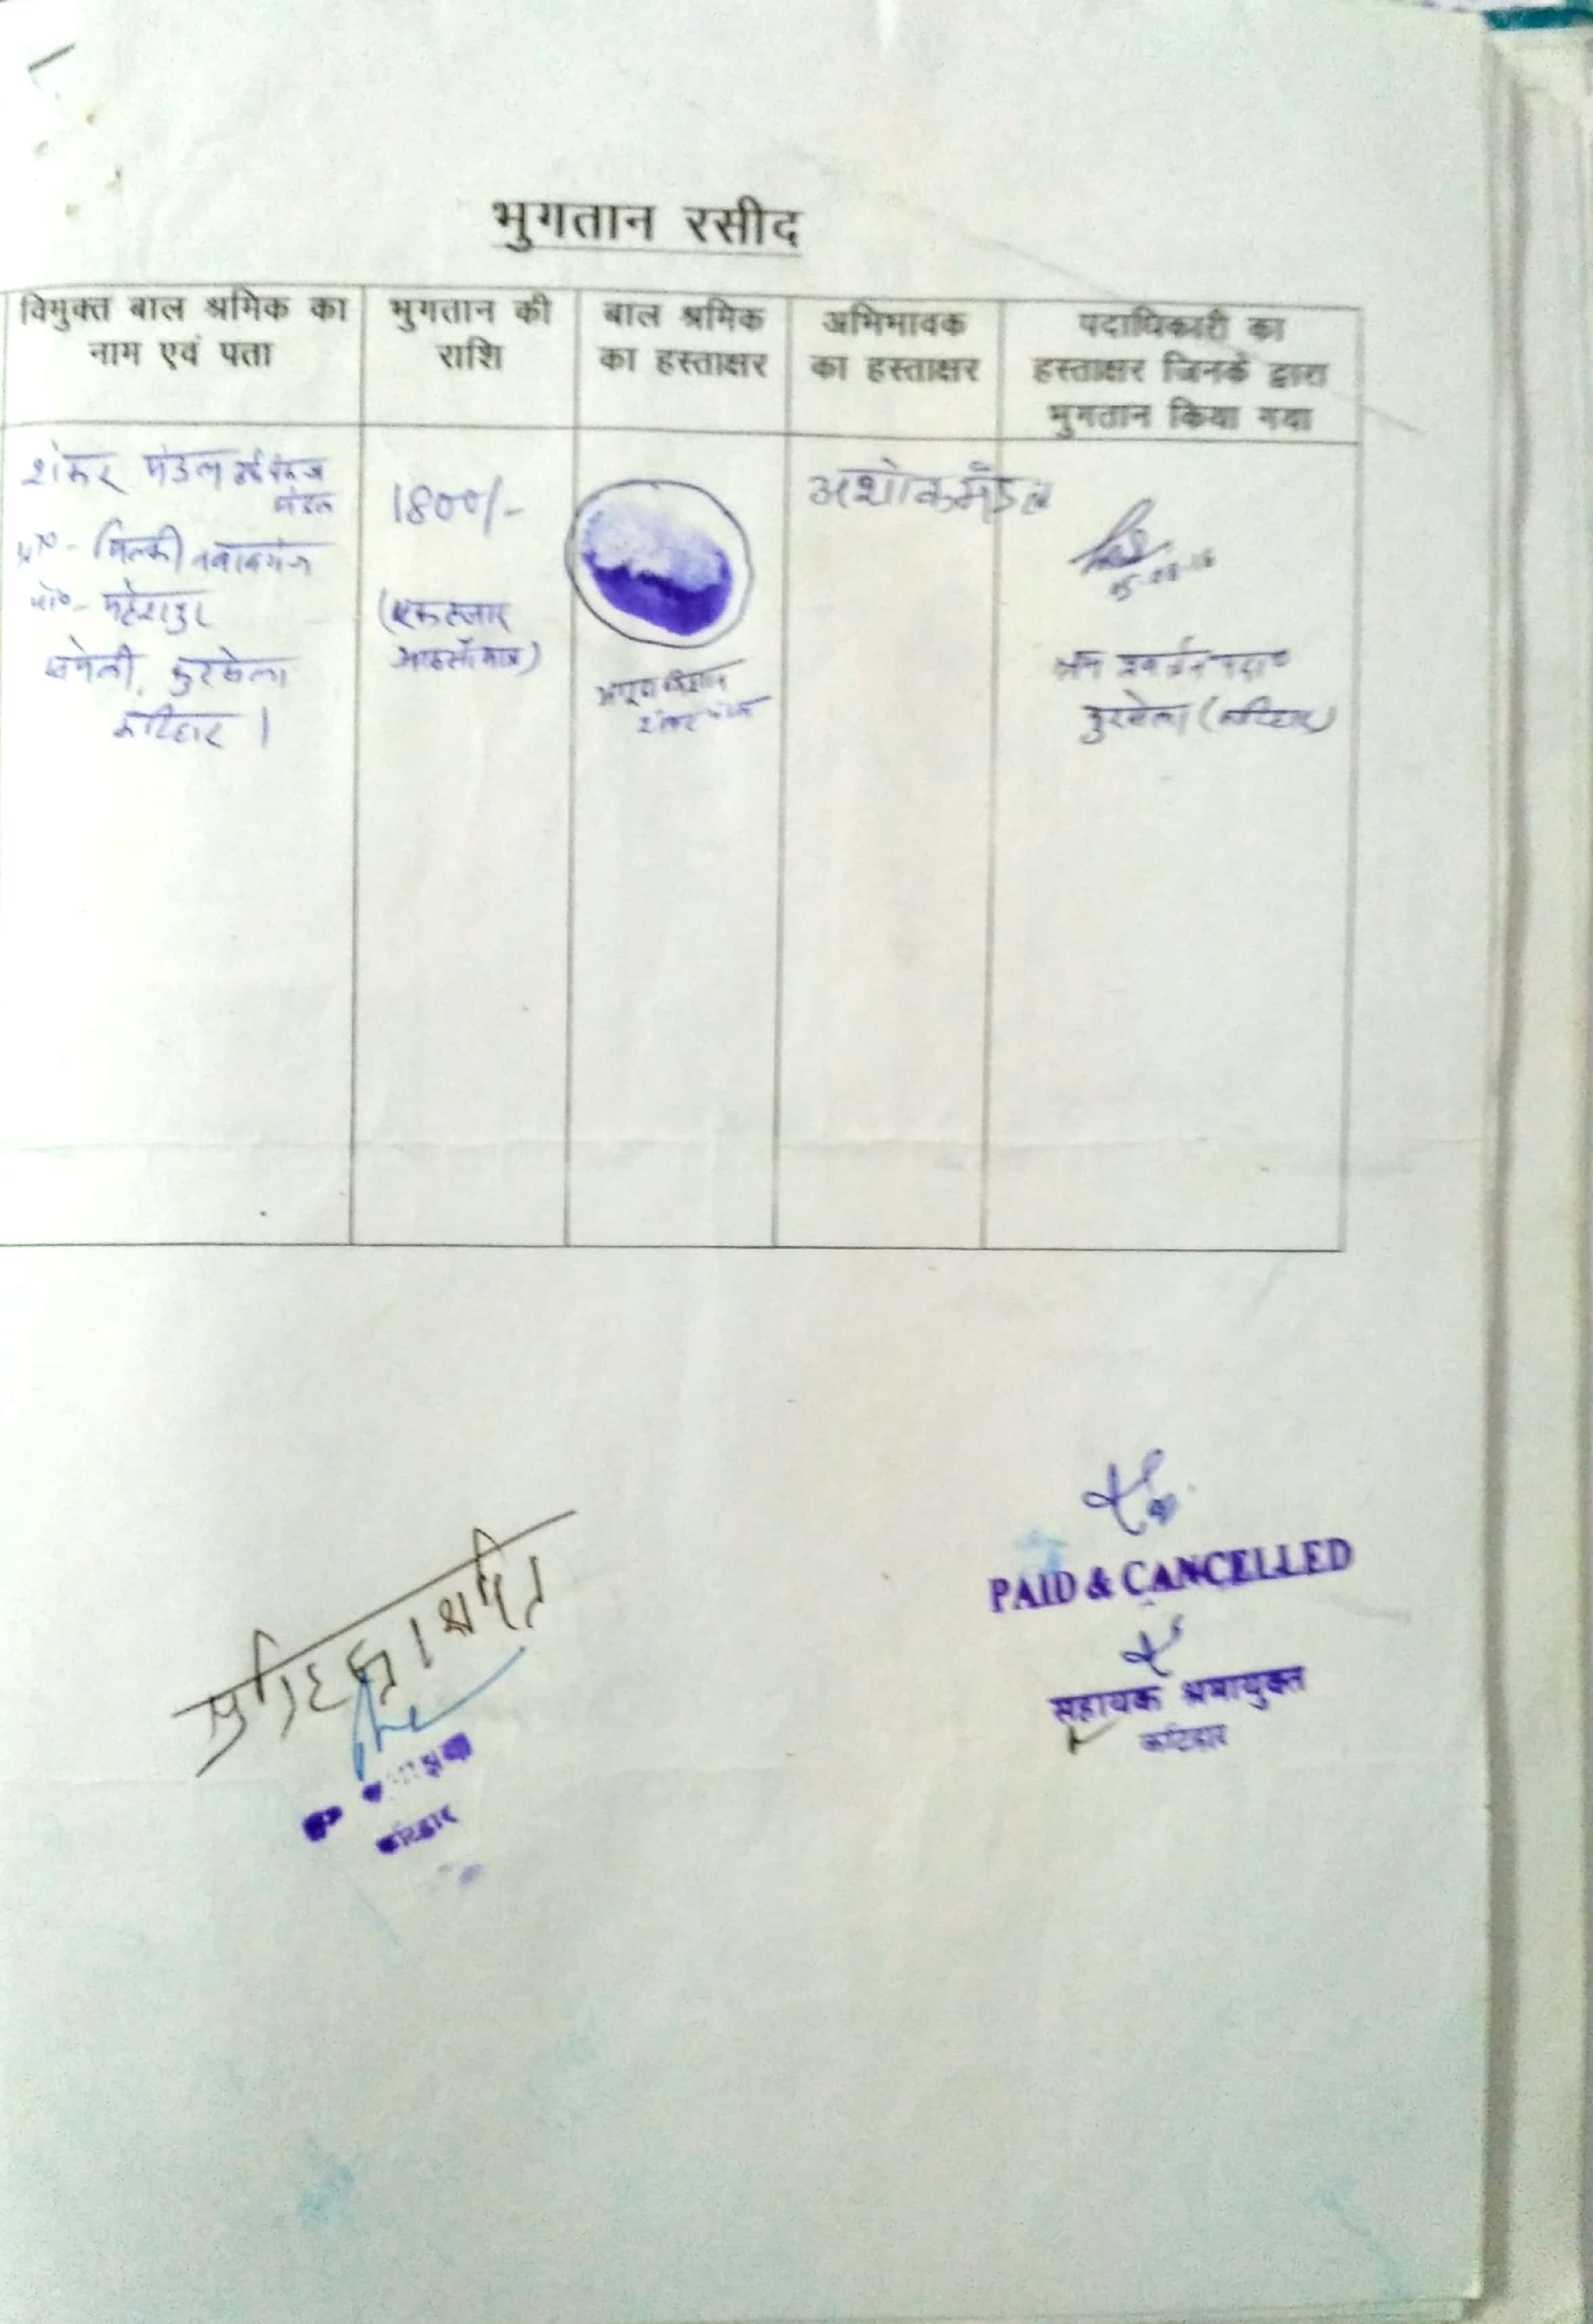 भुगतान रसीद
विमुक्त बाल श्रमिक का
नाम एवं पता
भुगतान की
राशि
बाल श्रमिक
का हस्ताक्षर
अभिभावक
का हस्ताक्षर
पदाधिकारी का
हस्ताक्षर जिनके द्वारा
भुगतान किया गया
शंकर मंडल उर्फ पंकज
मंडल
ग्रा०- मिल्की नवाबगंज
पो०- महेशपुर
समेली, कुरसेला
कटिहार ।
1800/-
(एक हजार
आठ सौ मात्र)
अंगूठा निशान
शंकर मंडल
अशोक मंडल
श्रम प्रवर्तन पदा०
कुरसेला (कटिहार)
PAID & CANCELLED
सहायक श्रमायुक्त
कटिहार
कटिहार